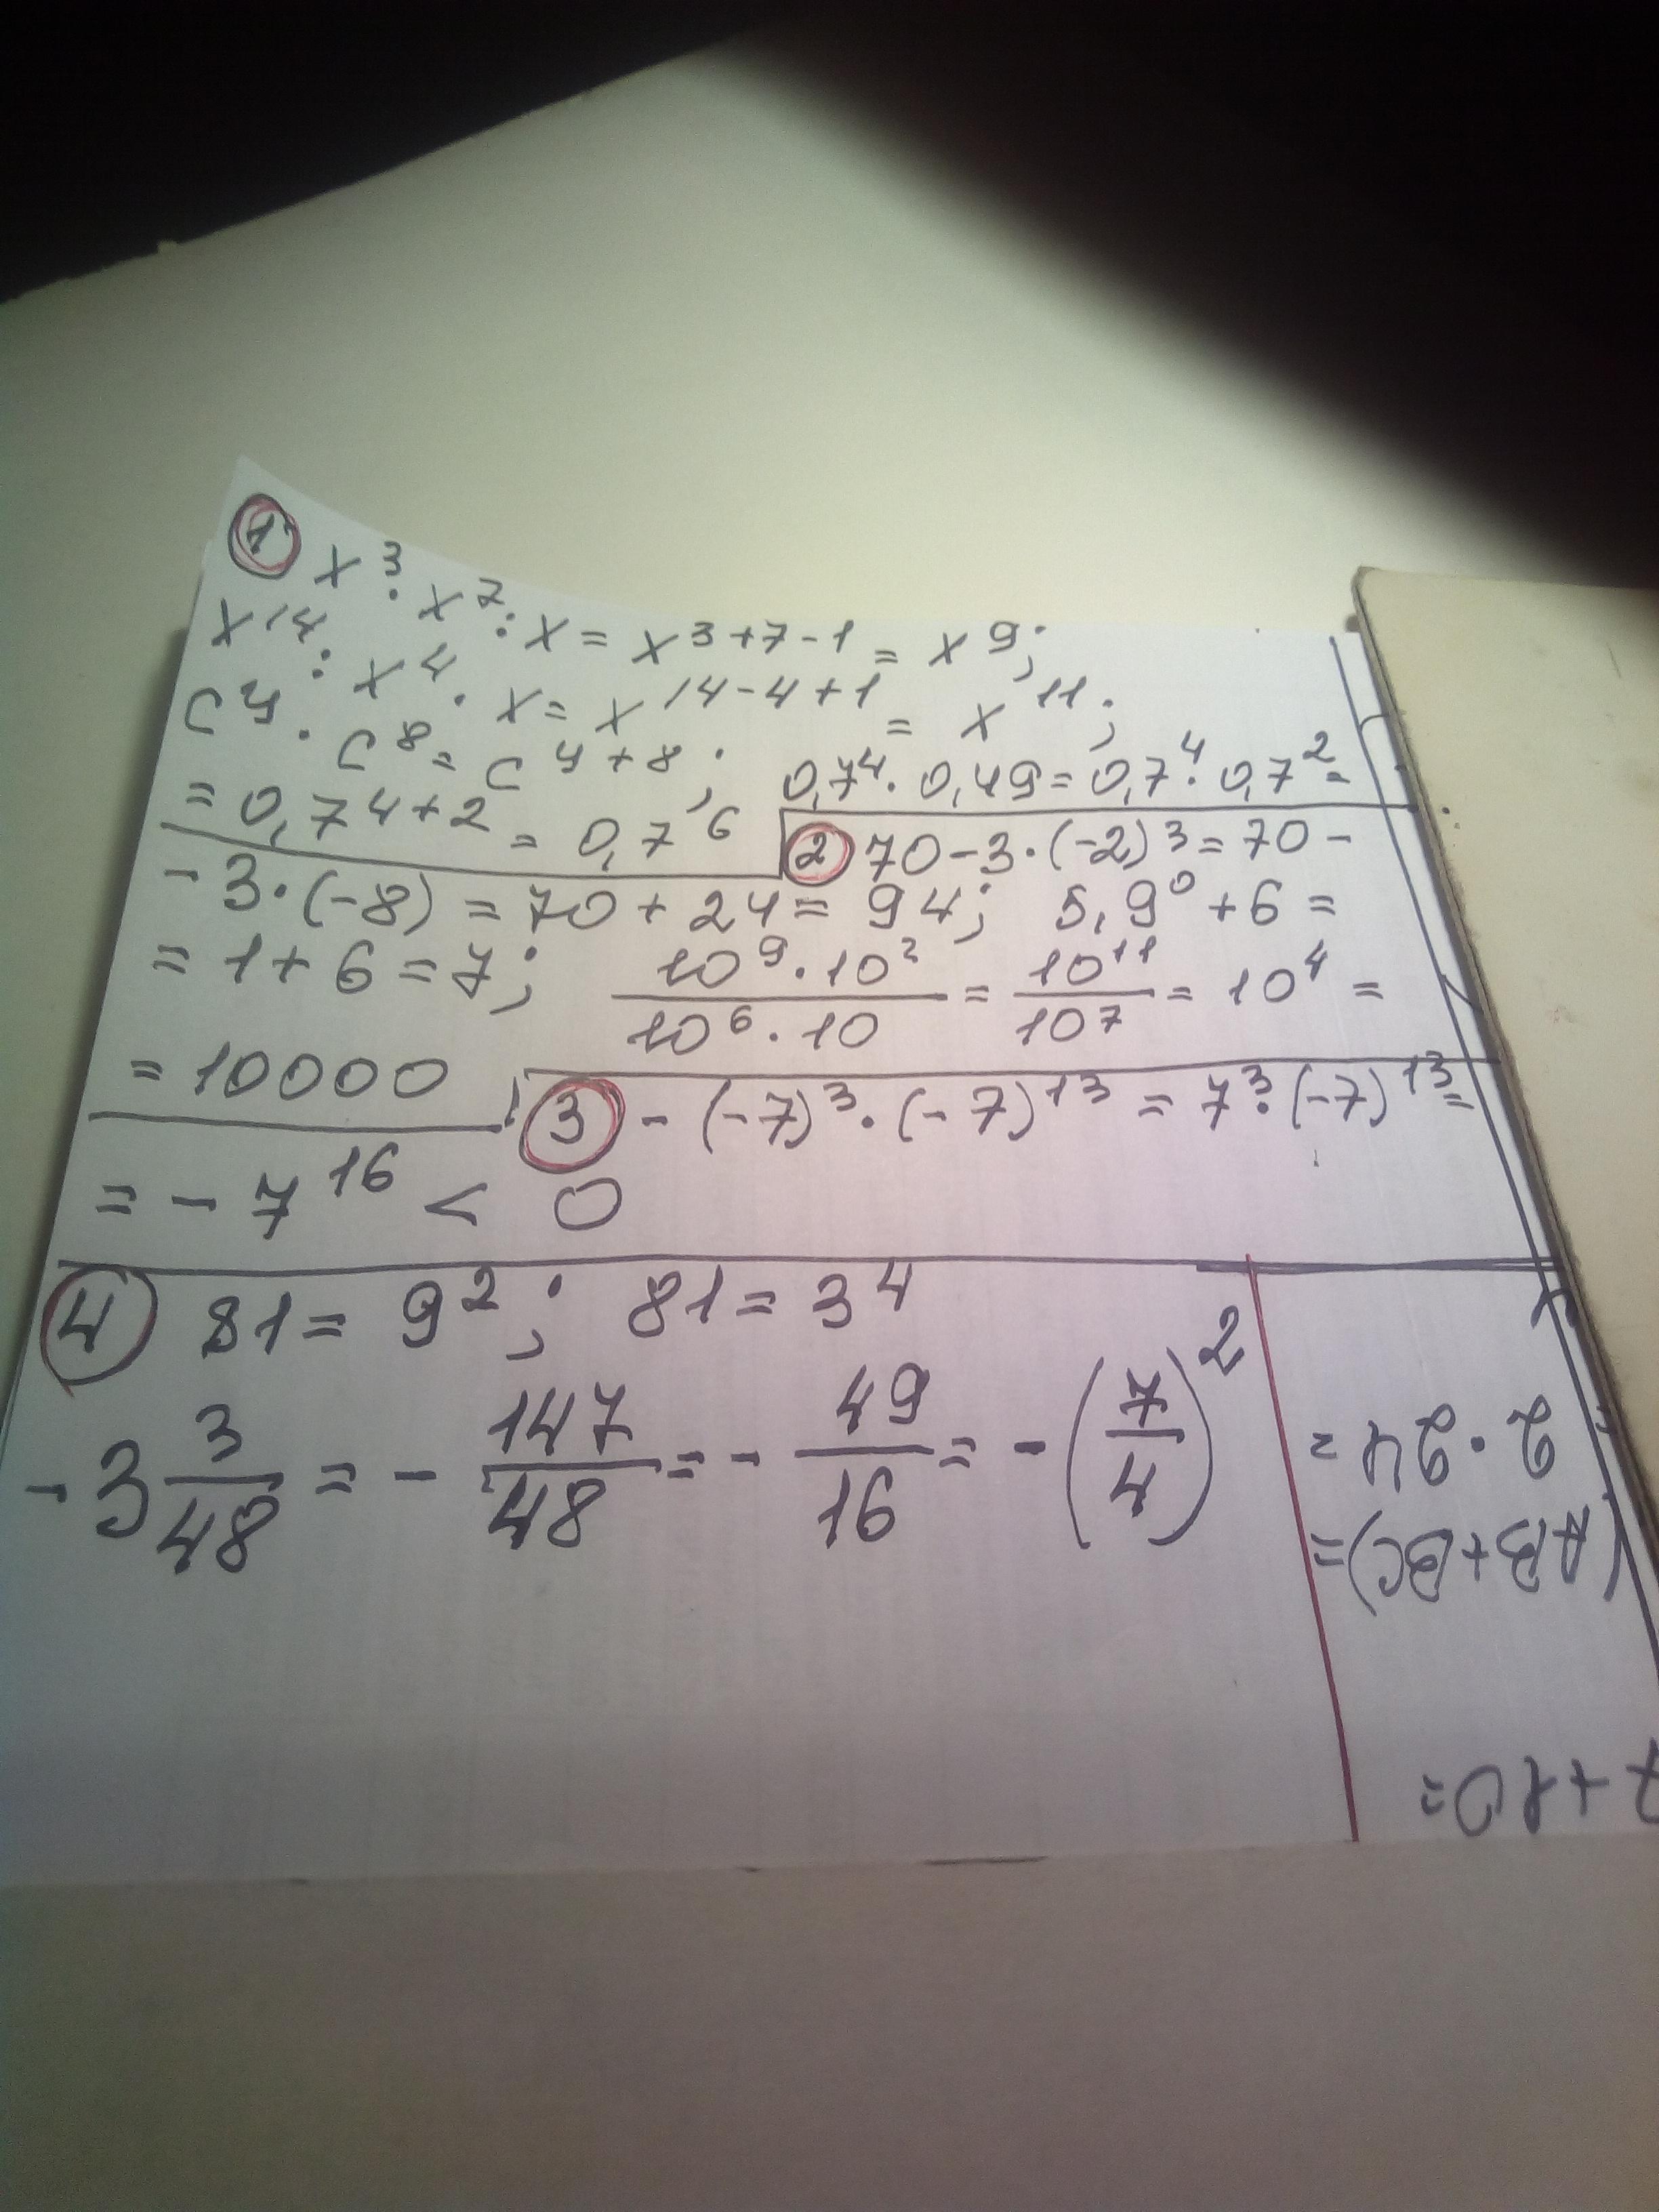 1 x³ · x⁷ : x = x³⁺⁷⁻¹ = x⁹;
x¹⁴ : x⁴ · x = x¹⁴⁻⁴⁺¹ = x¹¹;
c^y · c⁸ = c^(y+8); 0,7⁴ · 0,49 = 0,7⁴ · 0,7² =
= 0,7⁴⁺² = 0,7⁶
2 70 - 3 · (-2)³ = 70 -
- 3 · (-8) = 70 + 24 = 94; 5,9⁰ + 6 =
= 1 + 6 = 7; (10⁹ · 10²)/(10⁶ · 10) = 10¹¹/10⁷ = 10⁴ =
= 10000
3 - (-7)³ · (-7)¹³ = 7³ · (-7)¹³ =
= - 7¹⁶ < 0
4 81 = 9²; 81 = 3⁴
- 3 3/48 = - 147/48 = - 49/16 = - (7/4)²
7 + 10 =
(AB + BC) =
2 · 24 =